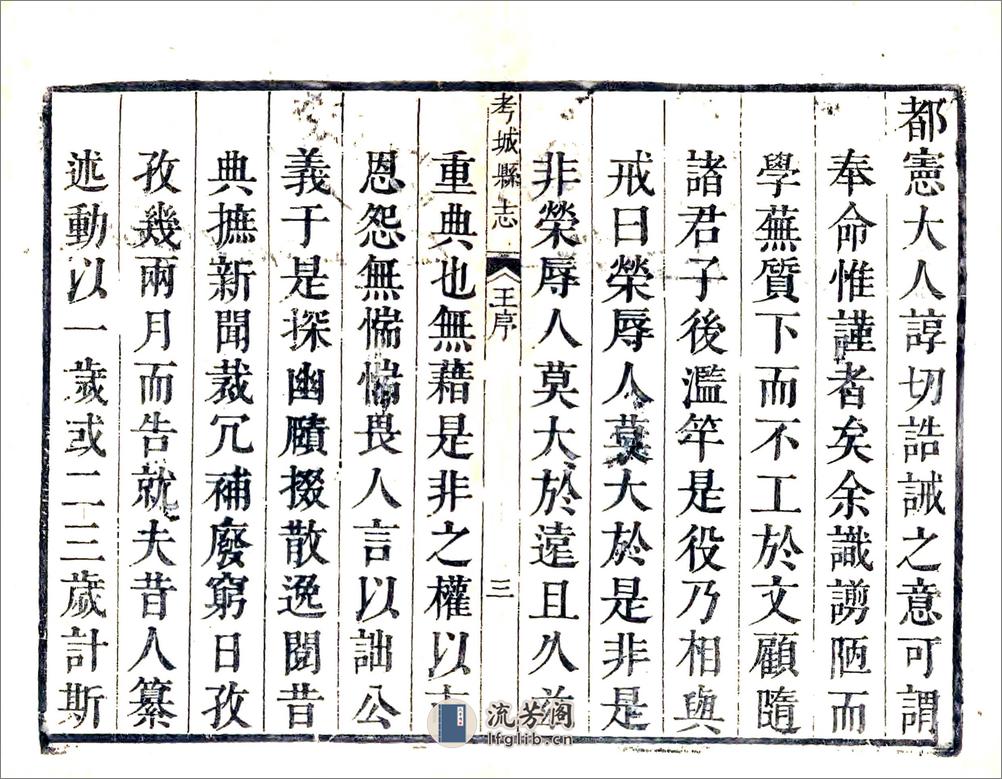 都憲大人諄切誥誡之意可謂
奉命惟謹者矣余識謭陋而
學蕪質下而不工於文顧隨
諸君子後濫竽是役乃相與
戒曰榮辱人莫大於是非是
非榮辱人莫大於遠且久
考城縣志 王序 三
重典也無藉是非之權以
恩怨無惴惴畏人言以詘公
義于是探幽賾掇散逸閱昔
典摭新聞裁冗補廢窮日孜
孜幾兩月而告就夫昔人纂
述動以一歲或二三歲計斯
流芳阁
lfglib.cn